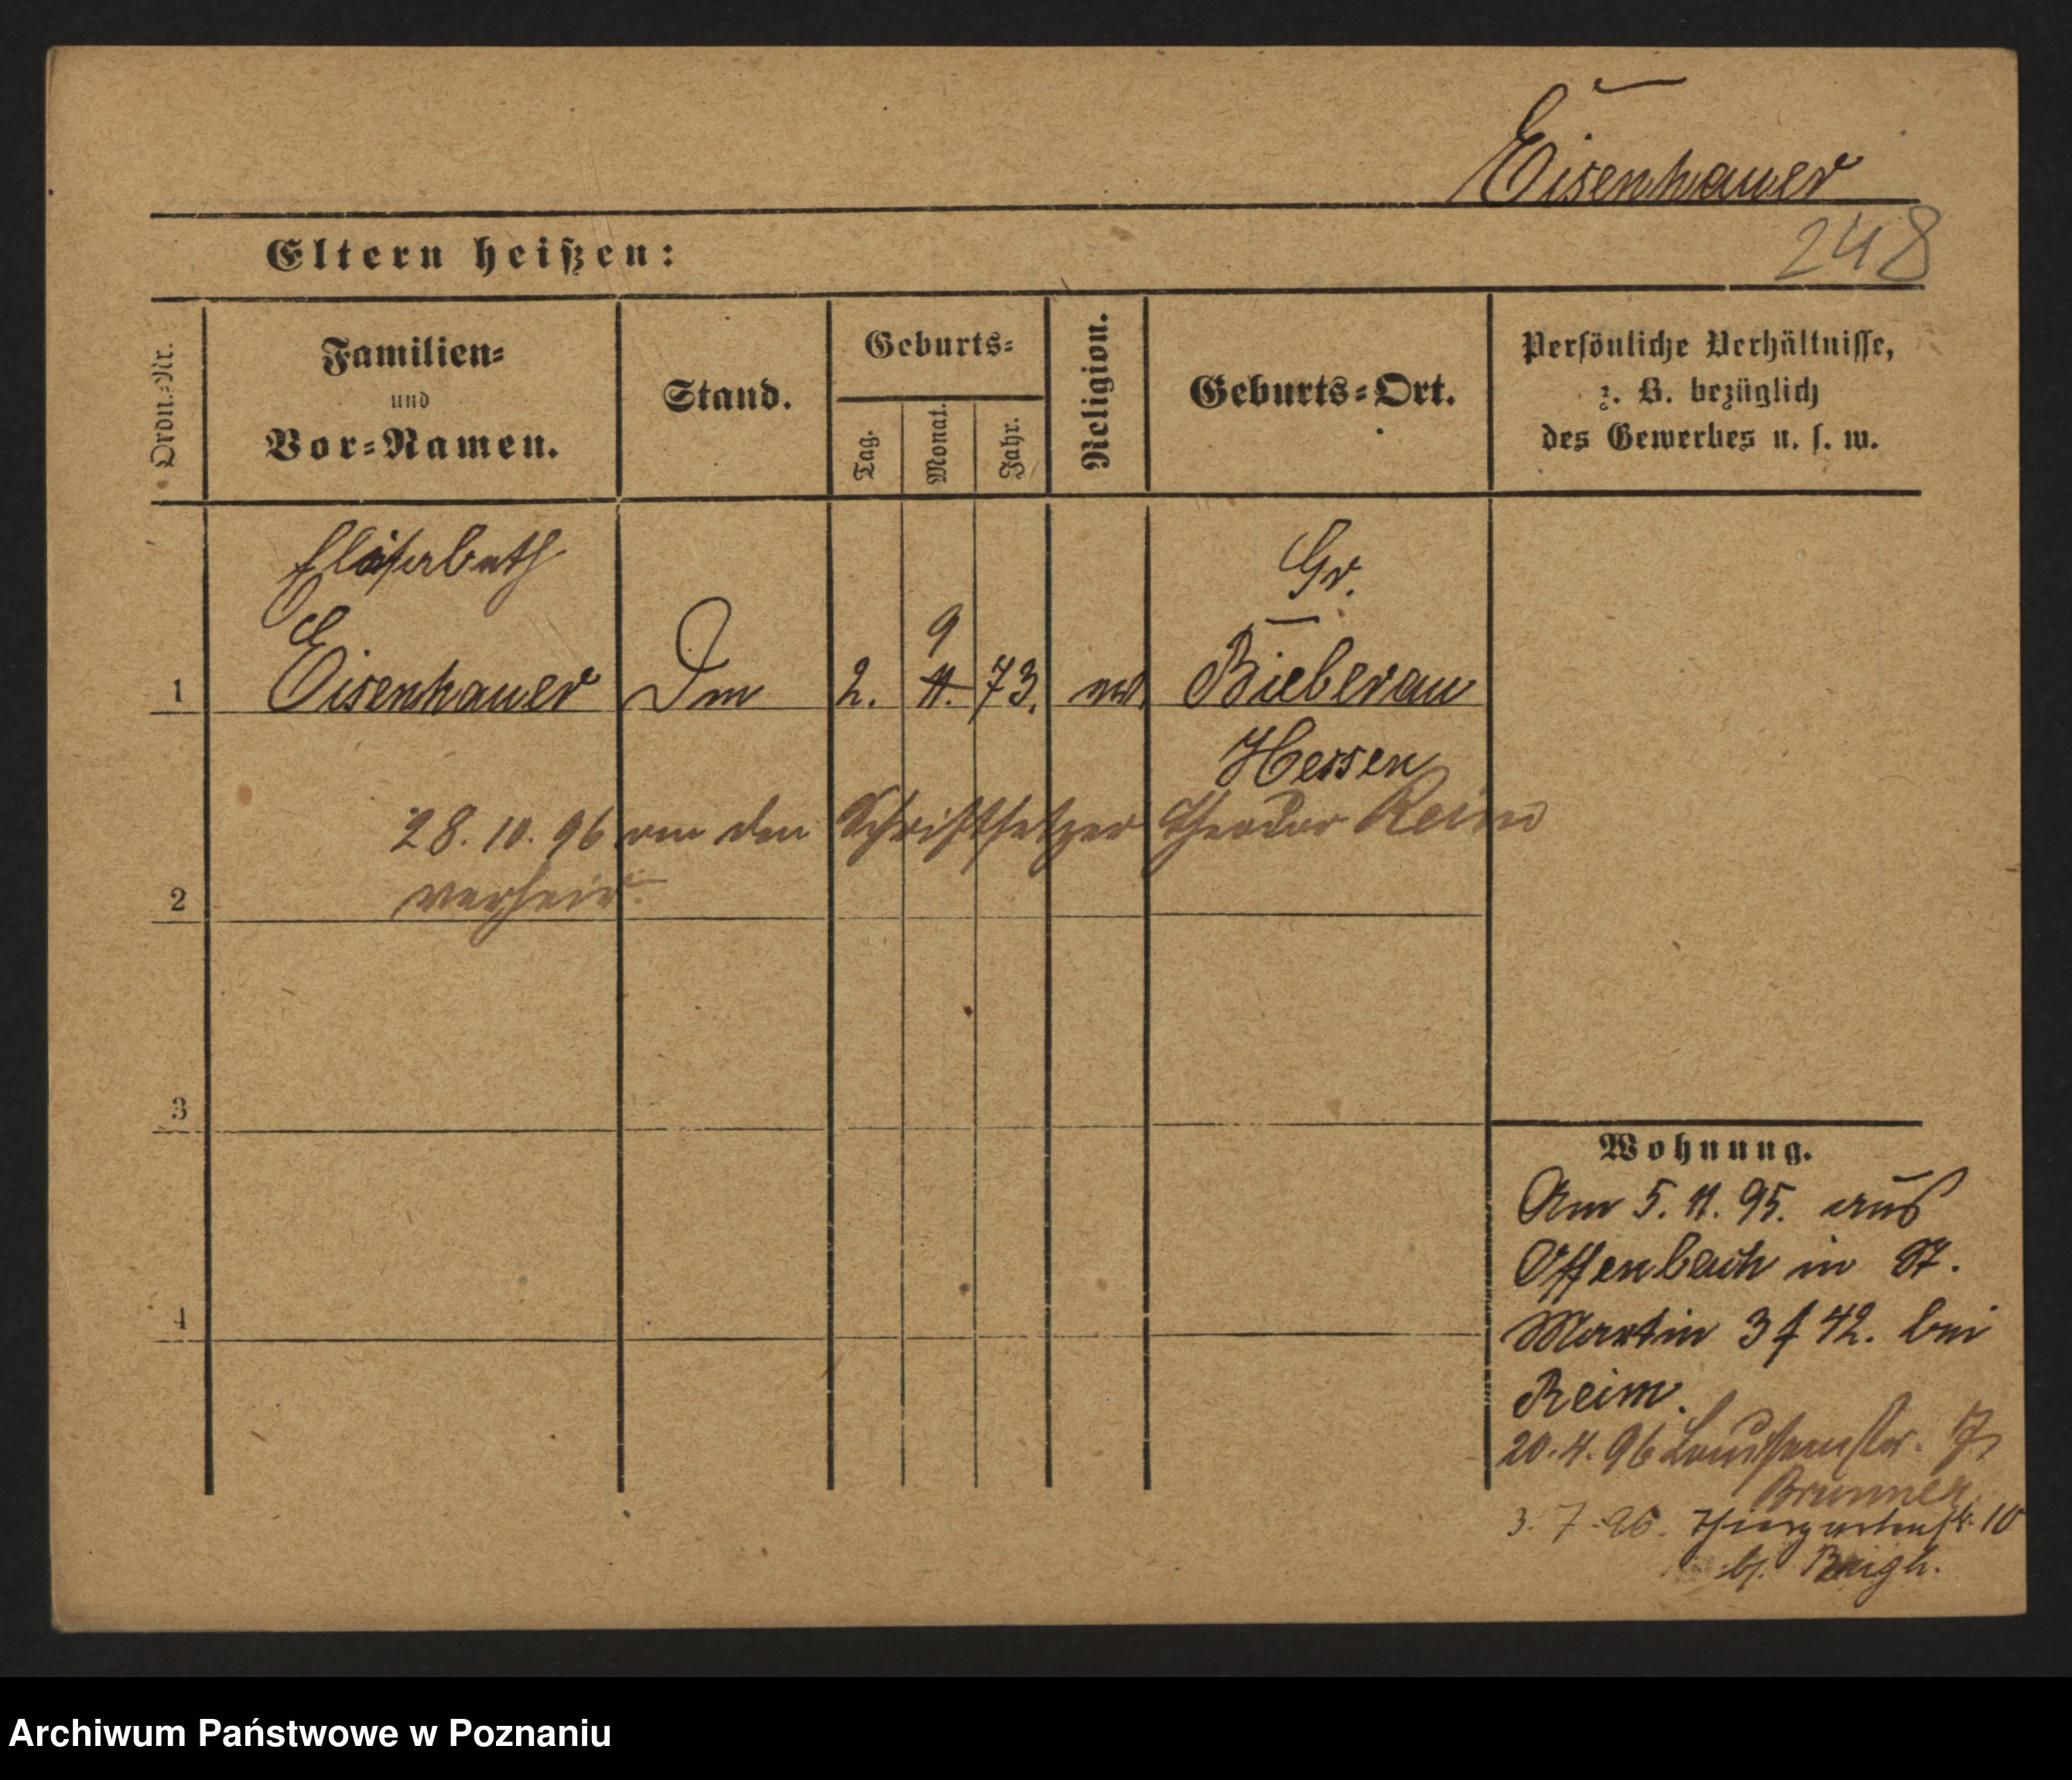 Eisenhauer
248
Eltern heißen:
Ordn.-Nr.
Familien-
und
Vor-Namen.
Stand.
Geburts-
Tag.
Monat.
Jahr.
Religion.
Geburts-Ort.
Persönliche Verhältnisse,
z. B. bezüglich
des Gewerbes u. s. w.
Elisabeth
Gr.
9
1 Eisenhauer 2. 11. 73. Bieberau
Hessen
28. 10. 96 den Schriftsetzer Theodor Reim
verheir.
2
3
4
Wohnung.
Am 5. 11. 95. aus
Offenbach in St.
Martin 42. bei
Reim.
20. 4. 96 7
Brunner
3. 7. 96. Thiergartenstr. 10
b.
Archiwum Państwowe w Poznaniu